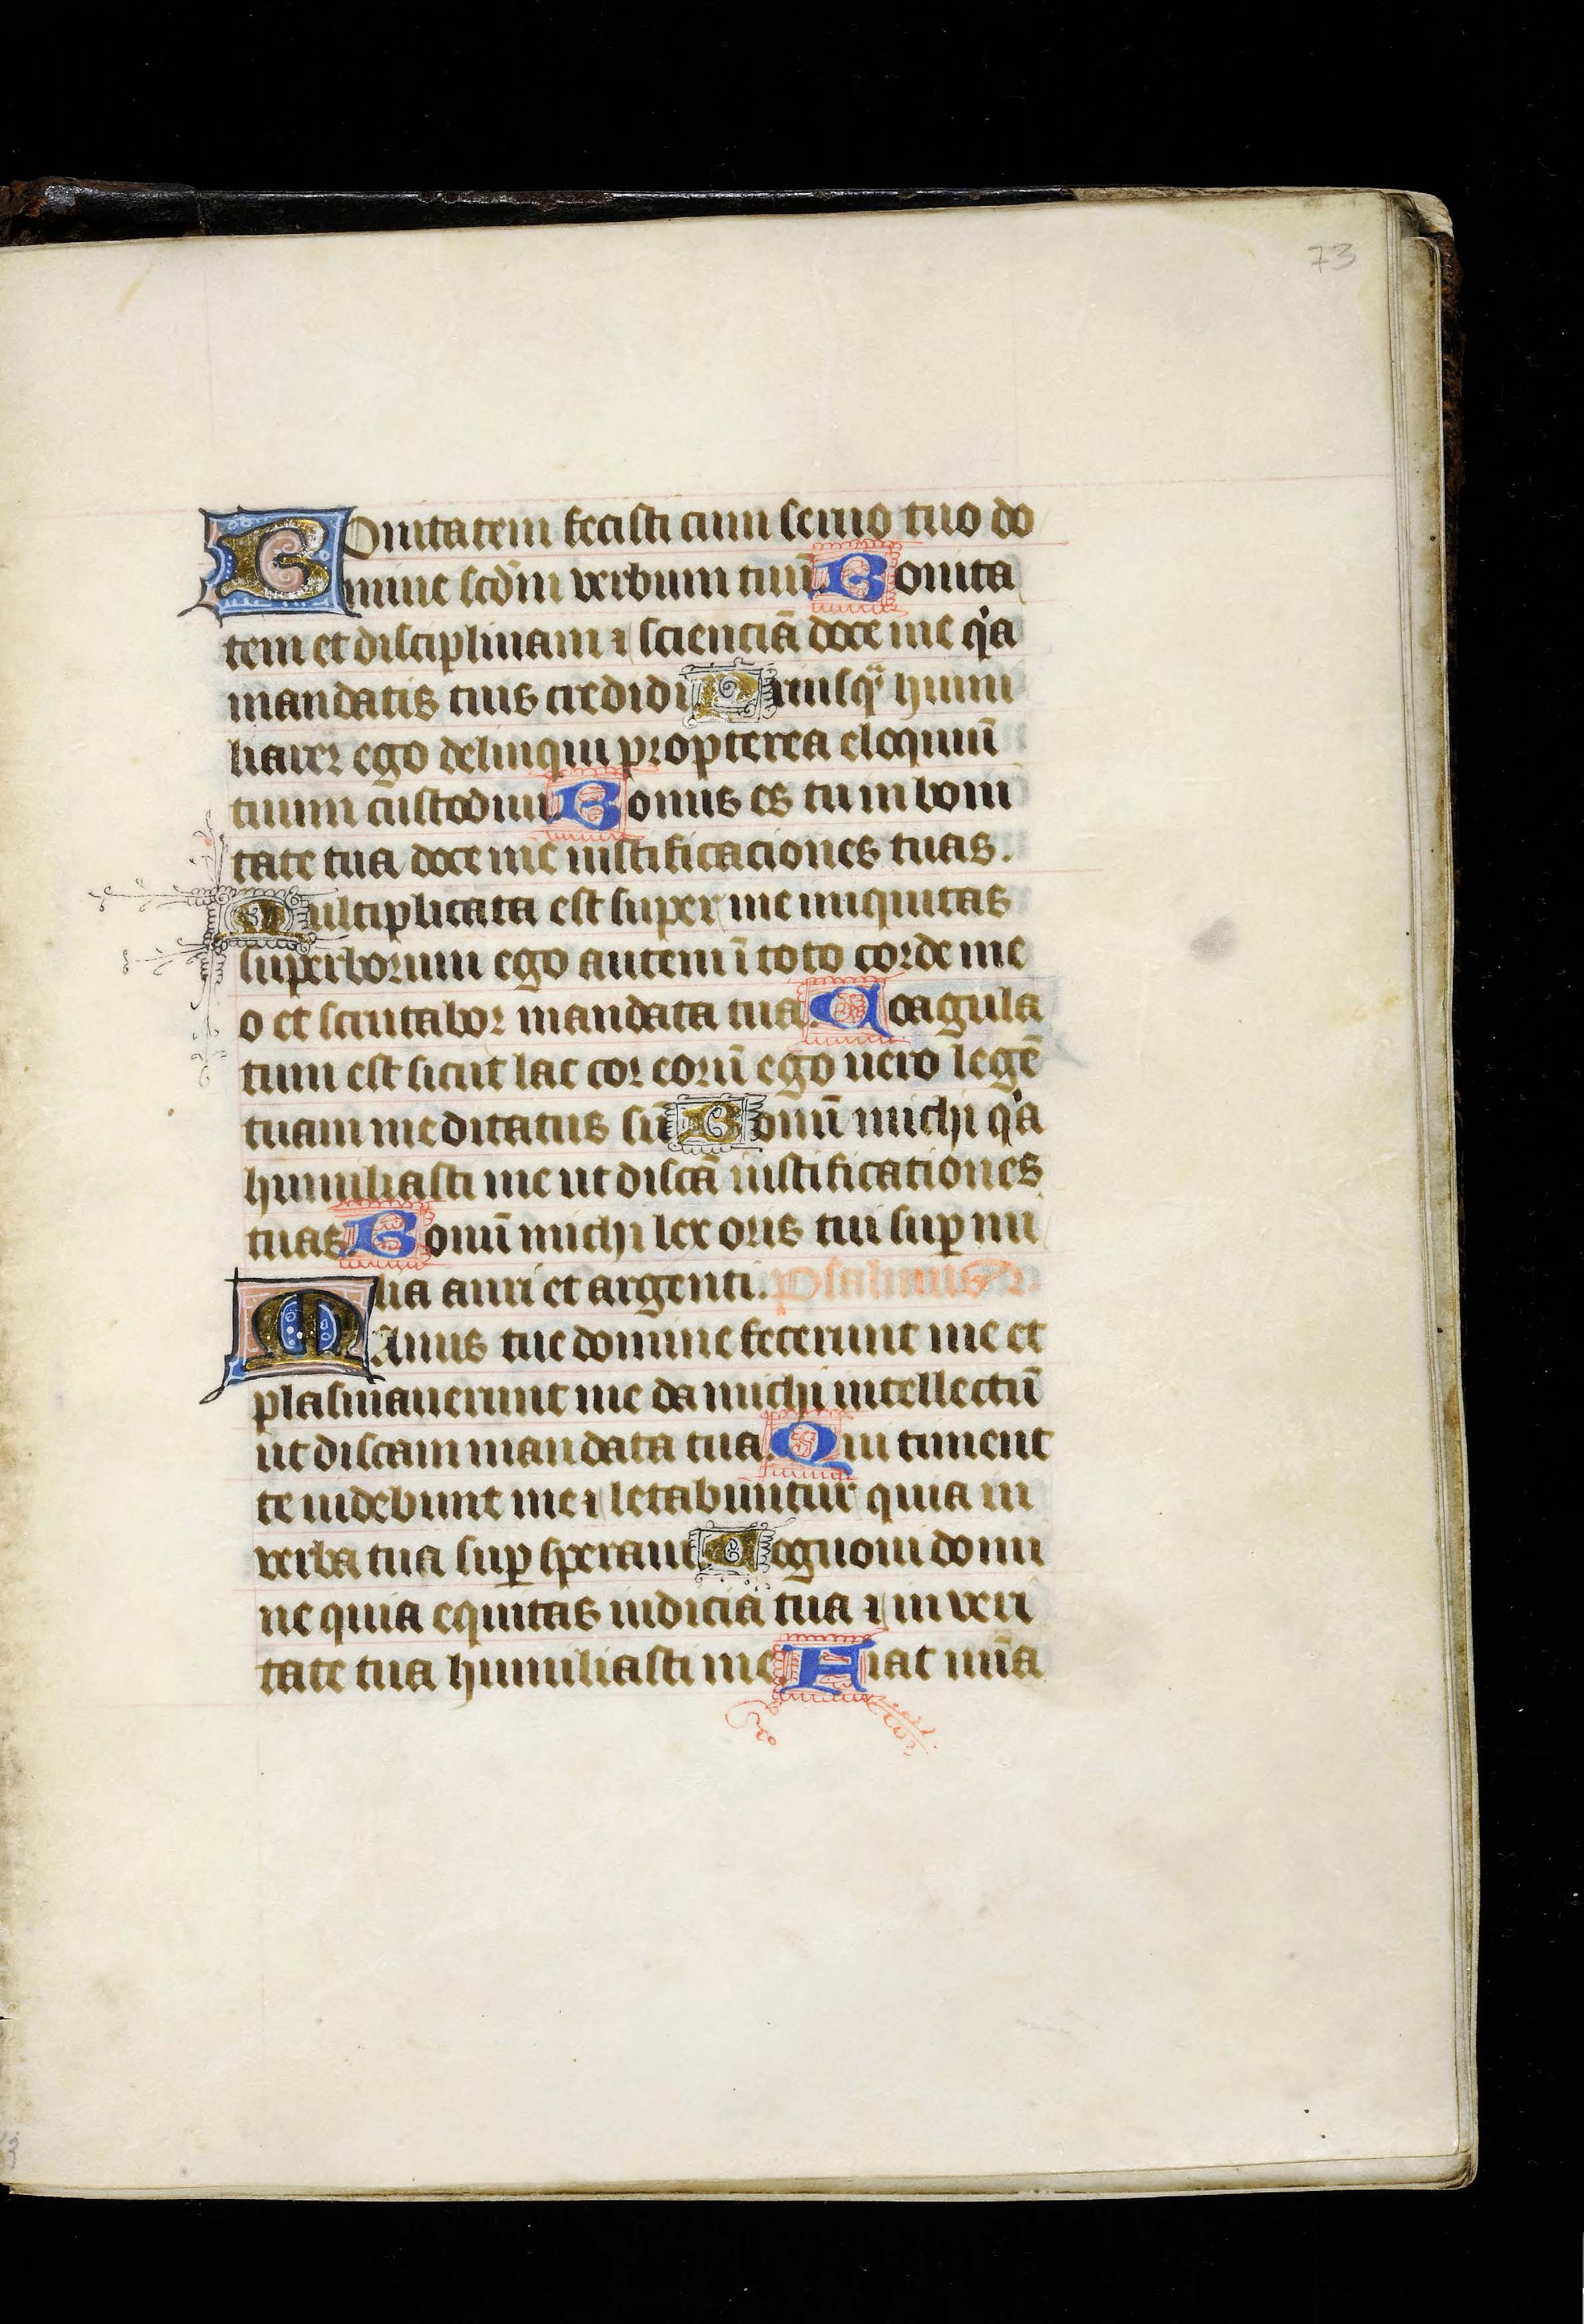 73
Bonitatem fecisti cum seruo tuo do
mine scdm verbum tuū. Bonita
tem et disciplinam ⁊ scienciā doce me qͥa
mandatis tuis credidi Priusqᷓ humi
liarer ego deliqui propterea eloquiū
tuum custodiui. Bonus es tu in boni
tate tua doce me iustificaciones tuas.
Multiplicata est super me iniquitas
superborum ego autem ī toto corde me
o et scrutabor mandata tua. Coagula
tum est sicut lac cor eorū ego uero legē
tuam meditatus sū Bonū michi qͥa
humiliasti me ut discā iustificationes
tuas. Bonū michi lex oris tui suꝑ mi
lia auri et argenti. Psalmus
Manus tue domine fecerunt me et
plasmauerunt me da michi intellectū
ut discam mandata tua. Qui timent
te uidebunt me ⁊ letabuntur quia in
verba tua suꝑ speraui Cognoui domi
ne quia equitas iudicia tua ⁊ in veri
tate tua humiliasti me. Fiat mīa